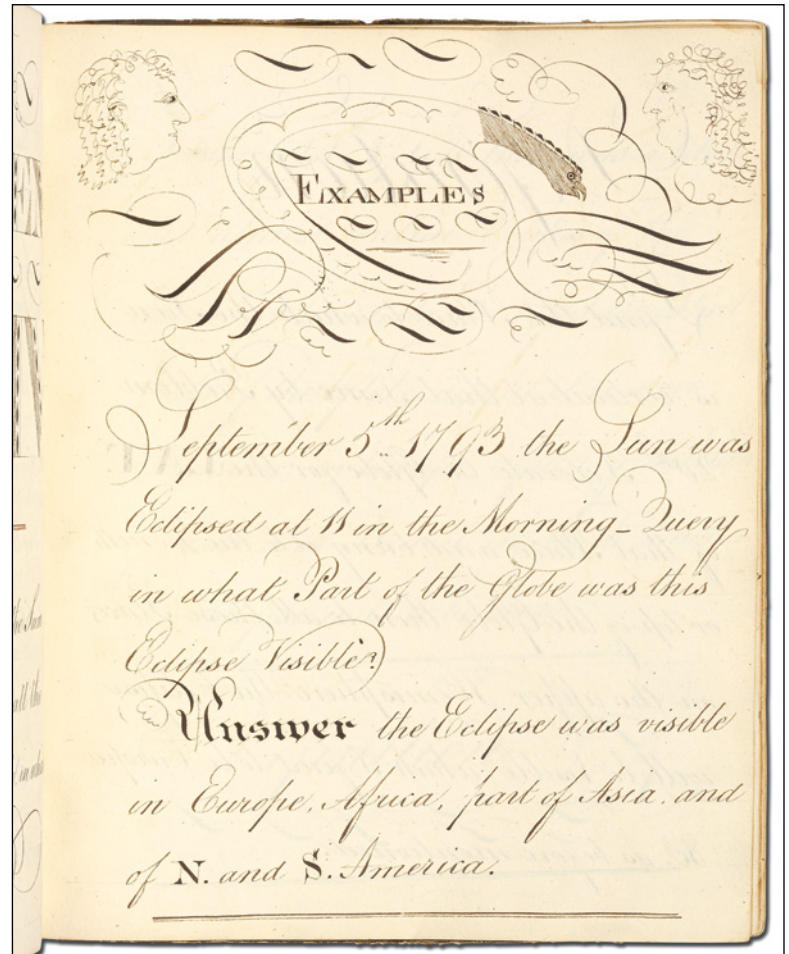 EXAMPLES
September 5th.. 1793 the Sun was
Eclipsed at 11 in the Morning_ Query
in what Part of the Globe was this
Eclipse Visible?
Answer the Eclipse was visible
in Europe, Africa, part of Asia, and
of N. and S. America.